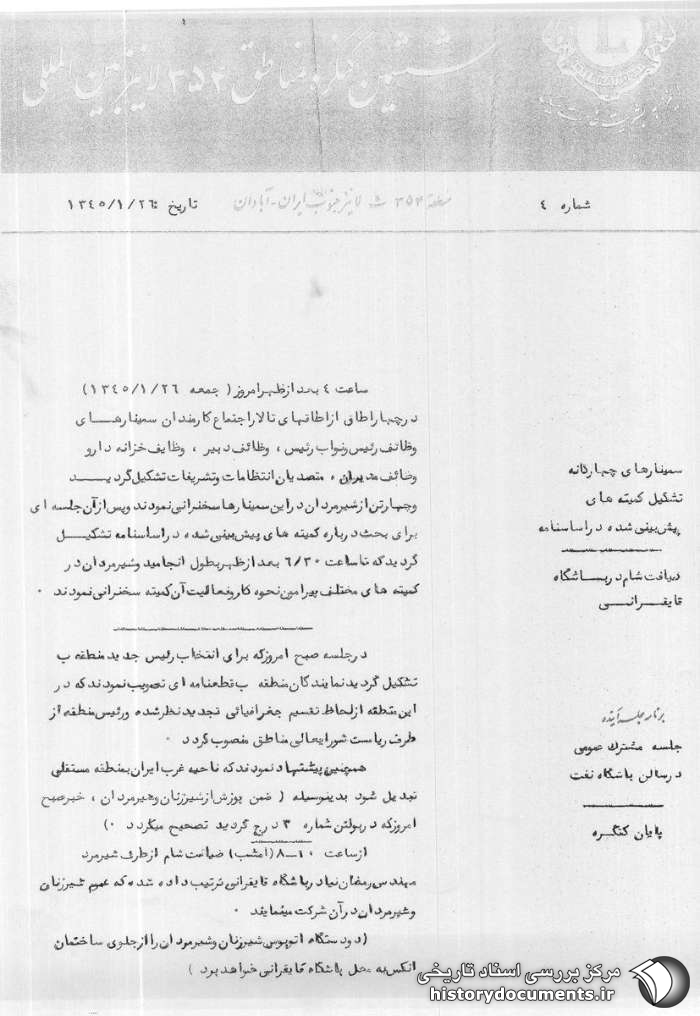 ششمین کنگره مناطق ۳۵۲ لاینز بین المللی
شماره ٤
منطقه ۳۵۲ لاینز جنوب ایران - آبادان
تاریخ : ۱۳٤٥/۱/۲٦
ساعت ٤ بعد از ظهر امروز ( جمعه ۱۳٤٥/۱/۲٦ )
در چهار اطاق از اطاقهای تالار اجتماع کارمندان سمینارهای
وظائف رئیس و نواب رئیس ، وظائف دبیر ، وظایف خزانه دار و
وظائف مدیران ، متصدیان انتظامات و تشریفات تشکیل گردید
و چهار تن از شیرمردان در این سمینارها سخنرانی نمودند و پس از آن جلسه ای
برای بحث درباره کمیته های پیش بینی شده در اساسنامه تشکیل
گردید که تا ساعت ٦/۳۰ بعد از ظهر بطول انجامید و شیرمردان در
کمیته های مختلف پیرامون نحوه کار و فعالیت آن کمیته سخنرانی نمودند ۰
در جلسه صبح امروز که برای انتخاب رئیس جدید منطقه ب
تشکیل گردید نمایندگان منطقه ب قطعنامه ای تصویب نمودند که در
این منطقه از لحاظ تقسیم جغرافیائی تجدید نظر شده و رئیس منطقه از
طرف ریاست شورایعالی مناطق منصوب گردد ۰
همچنین پیشنهاد نمودند که ناحیه غرب ایران بمنطقه مستقلی
تبدیل شود بدینوسیله ( ضمن پوزش از شیرزنان و شیرمردان ، خبر صبح
امروز که در بولتن شماره ۳ درج گردید تصحیح میگردد ۰)
از ساعت ۱۰-۸ (امشب) ضیافت شام از طرف شیرمرد
مهندس رمضان نیا در باشگاه قایقرانی ترتیب داده شده که عموم شیرزنان
و شیرمردان در آن شرکت مینمایند ۰
(دو دستگاه اتوبوس شیرزنان و شیرمردان را از جلوی ساختمان
انکس به محل باشگاه قایقرانی خواهد برد )
سمینارهای چهارگانه
تشکیل کمیته های
پیش بینی شده در اساسنامه
ضیافت شام در باشگاه
قایقرانی
برنامه جلسه آینده
جلسه مشترک عمومی
در سالن باشگاه نفت
پایان کنگره
مرکز بررسی اسناد تاریخی
historydocuments.ir